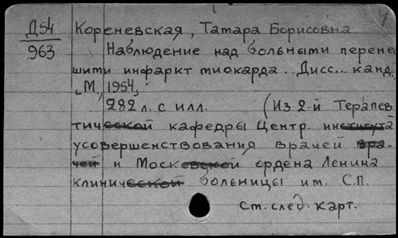 Д54
963
Кореневская, Тамара Борисовна
Наблюдение над больными перене
шити инфаркт миокарда.. Дисс... канд.
М., 1954,
282 л. с илл. (Из 2-й Терапев
тической кафедры Центр. института
усовершенствования врачей вра-
чей и Московской ордена Ленина
клинической больницы им. С.П.
См. след. карт.